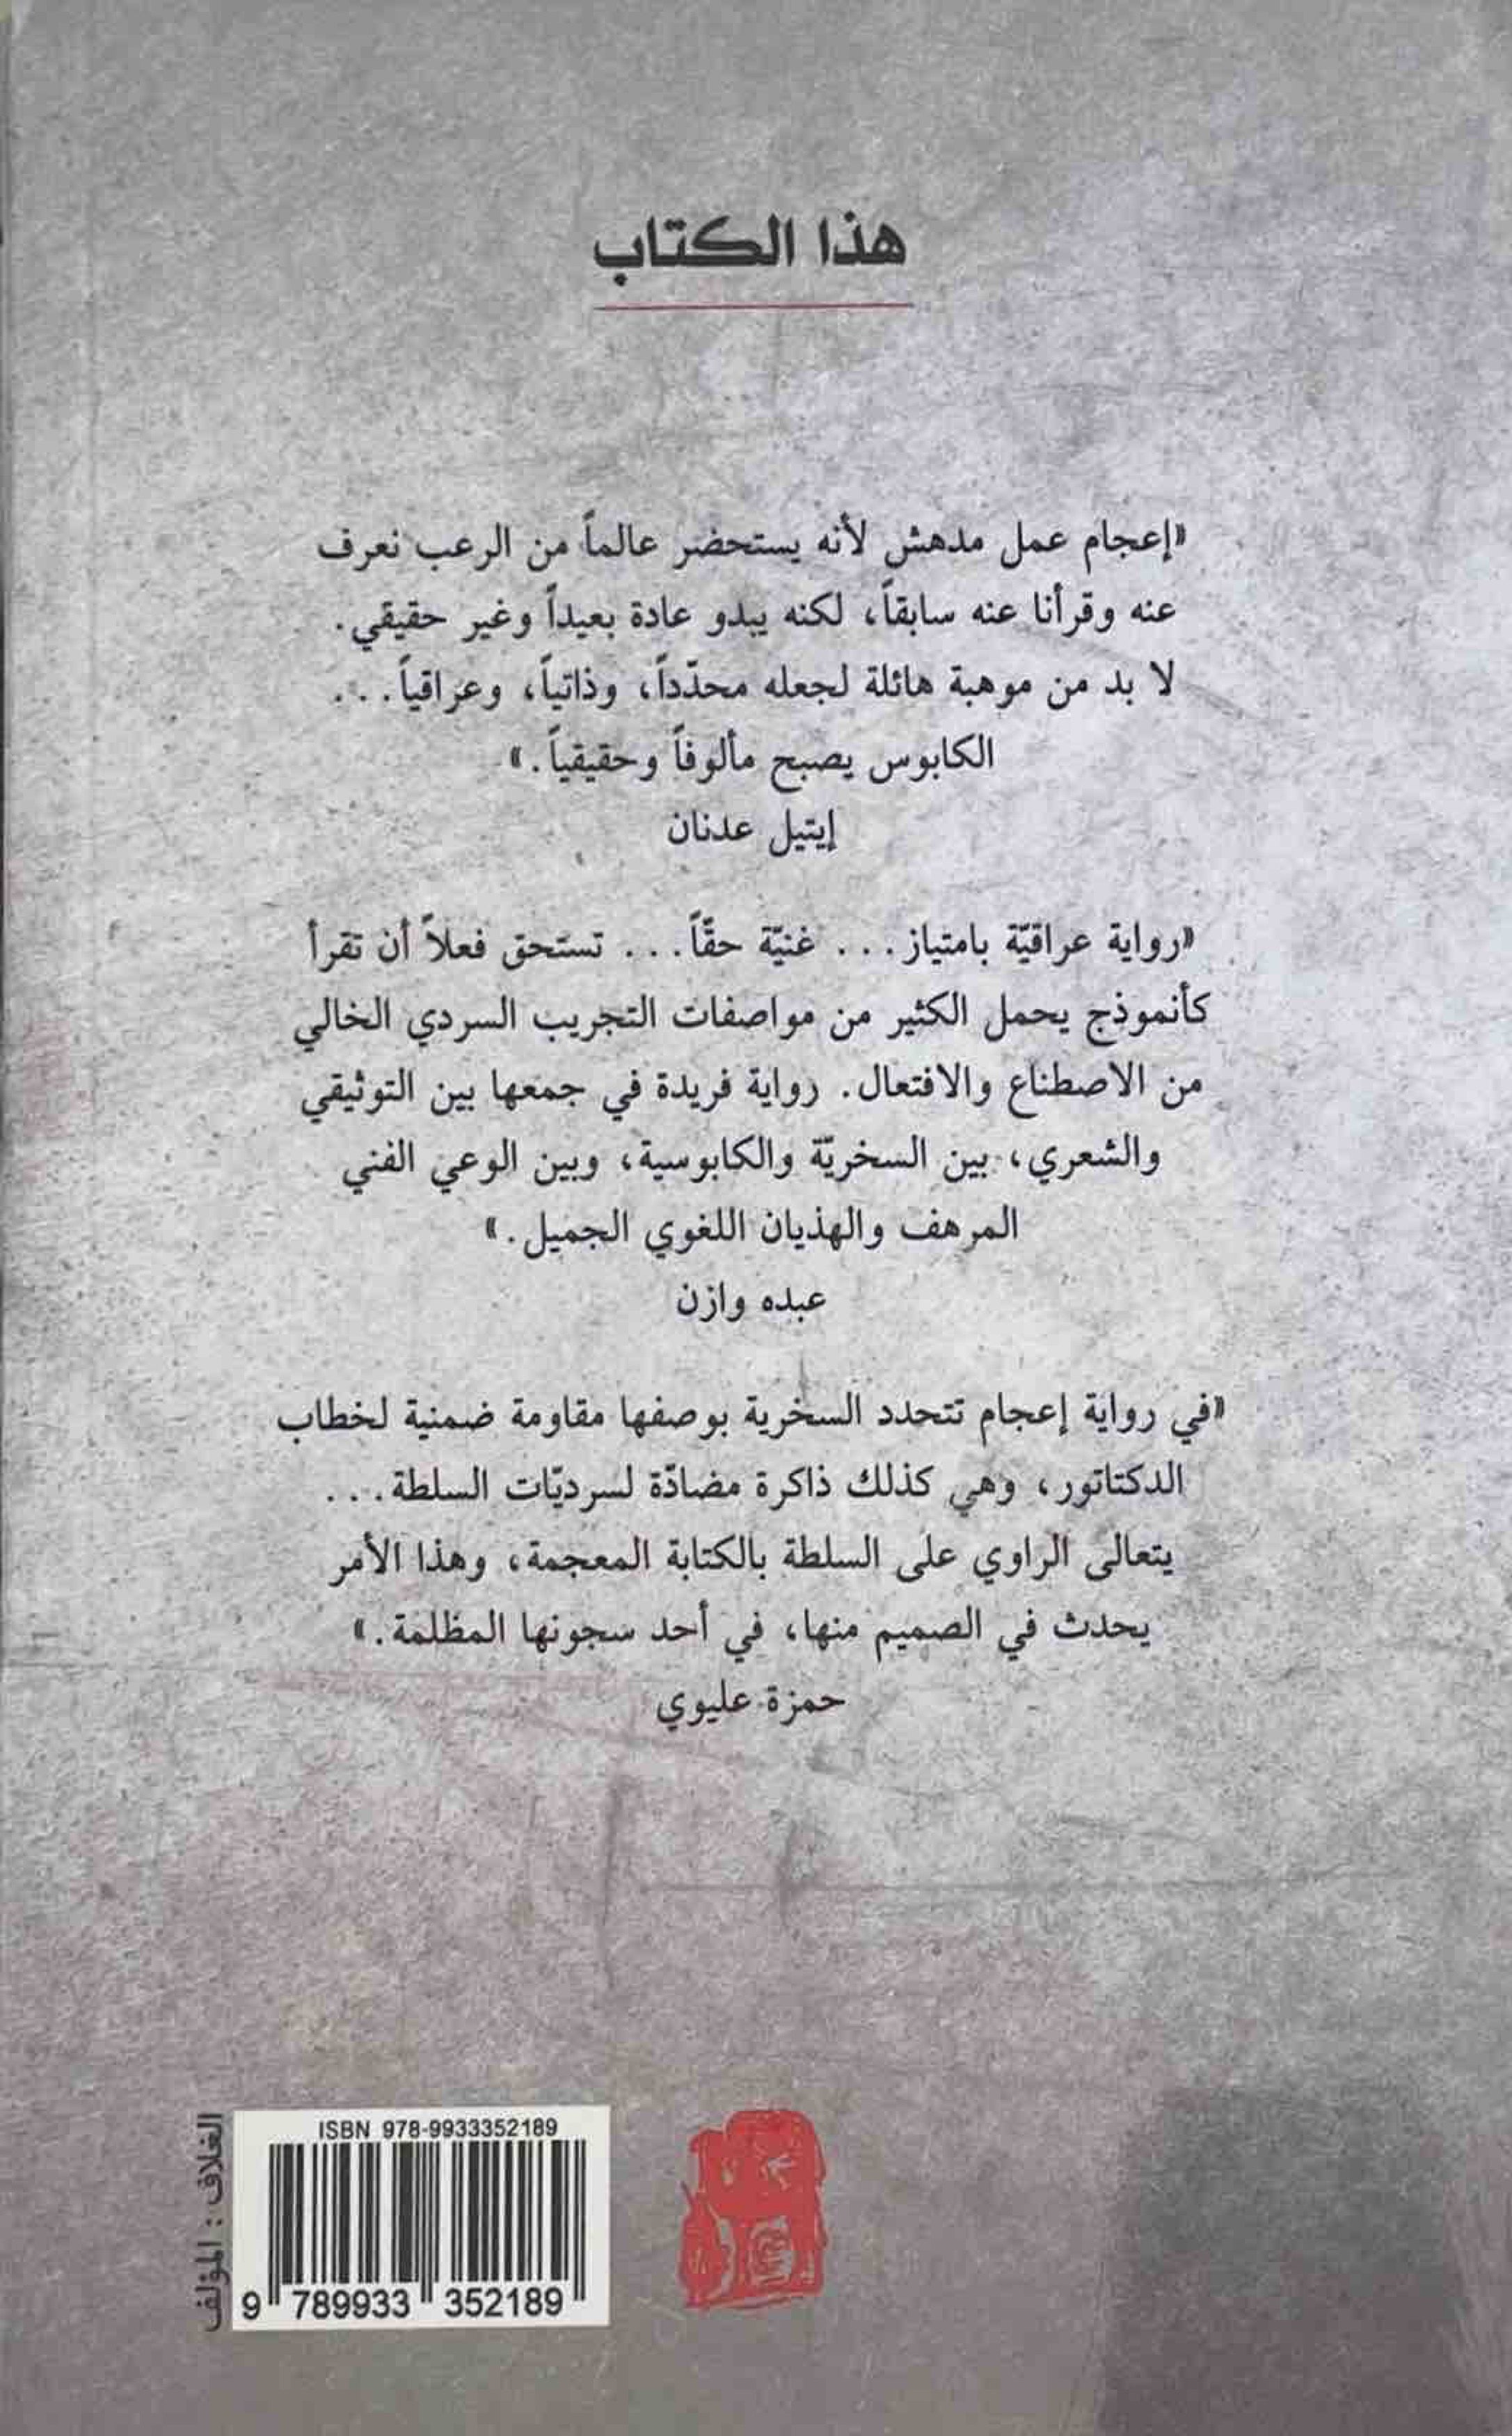 هذا الكتاب
«إعجام عمل مدهش لأنه يستحضر عالماً من الرعب نعرف
عنه وقرأنا عنه سابقاً، لكنه يبدو عادة بعيداً وغير حقيقي.
لا بد من موهبة هائلة لجعله محدّداً، وذاتياً، وعراقياً...
الكابوس يصبح مألوفاً وحقيقياً.»
إيتيل عدنان
«رواية عراقيّة بامتياز... غنيّة حقّاً... تستحق فعلاً أن تقرأ
كأنموذج يحمل الكثير من مواصفات التجريب السردي الخالي
من الاصطناع والافتعال. رواية فريدة في جمعها بين التوثيقي
والشعري، بين السخريّة والكابوسية، وبين الوعي الفني
المرهف والهذيان اللغوي الجميل.»
عبده وازن
«في رواية إعجام تتحدد السخرية بوصفها مقاومة ضمنية لخطاب
الدكتاتور، وهي كذلك ذاكرة مضادّة لسرديّات السلطة...
يتعالى الراوي على السلطة بالكتابة المعجمة، وهذا الأمر
يحدث في الصميم منها، في أحد سجونها المظلمة.»
حمزة عليوي
الغلاف : المؤلف
ISBN 978-9933352189
9 789933 352189